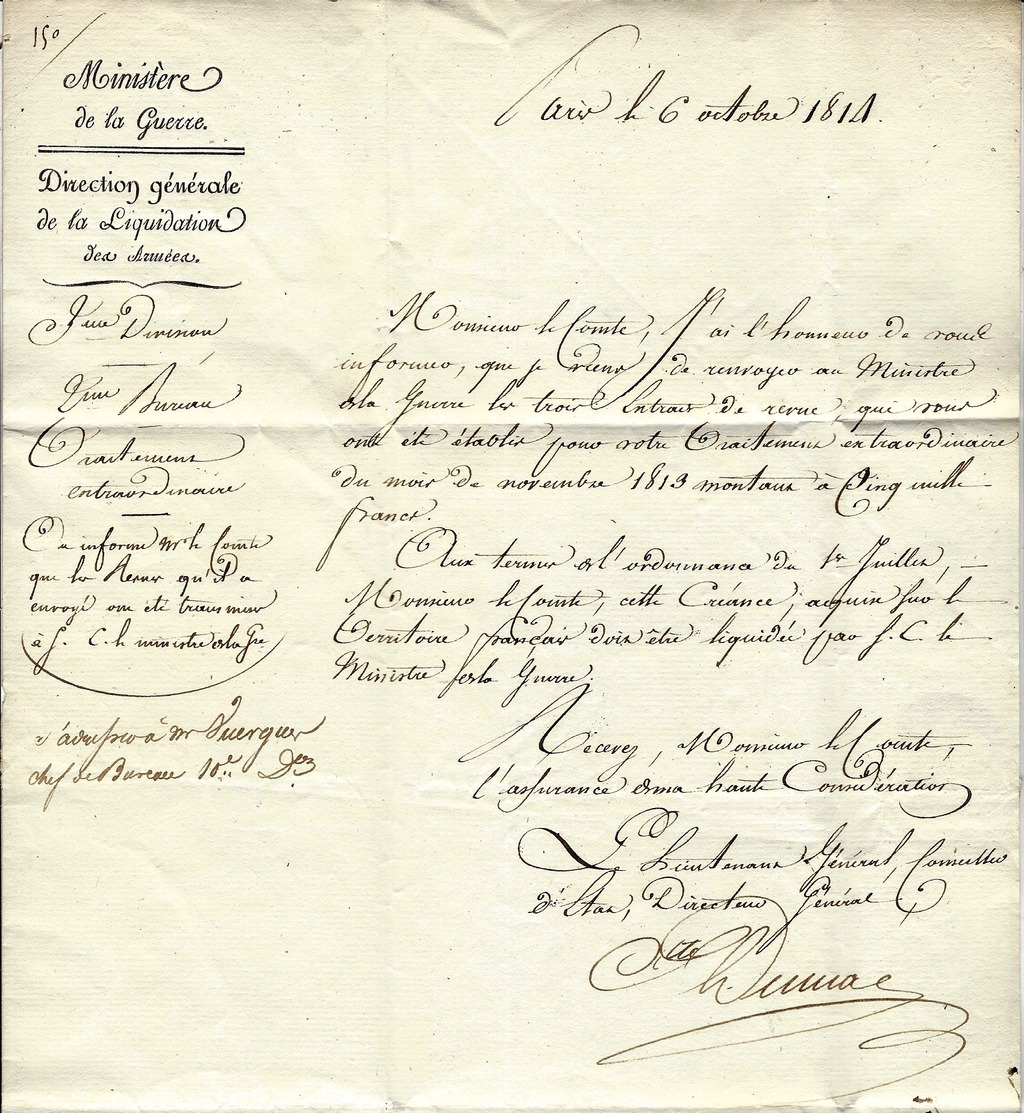 15º
Ministère
de la Guerre.
Direction générale
de la Liquidation
des Armées.
Division
Bureau
Traitement
extraordinaire
On informe Mr le Comte
que les Revues qu'il a
envoyé ont été transmises
à S. E. le ministre de la Gre
s'adresser à Mr
chef de Bureau 10e
Paris le 6 octobre 1814.
Monsieur le Comte, J'ai l'honneur de vous
informer, que je viens de renvoyer au Ministre
de la Guerre les trois Extraits de revue, qui vous
ont été établis pour votre Traitement extraordinaire
du mois de novembre 1813 montant à Cinq mille
francs.
Aux termes de l'ordonnance du 1er Juillet,
Monsieur le Comte, cette Créance, acquise sur le
Territoire français doit être liquidée par S. E. le
Ministre de la Guerre.
Recevez, Monsieur le Comte,
l'assurance de ma haute Considération
Le Lieutenant Général, Conseiller
d'Etat, Directeur Général
Cte Dumas